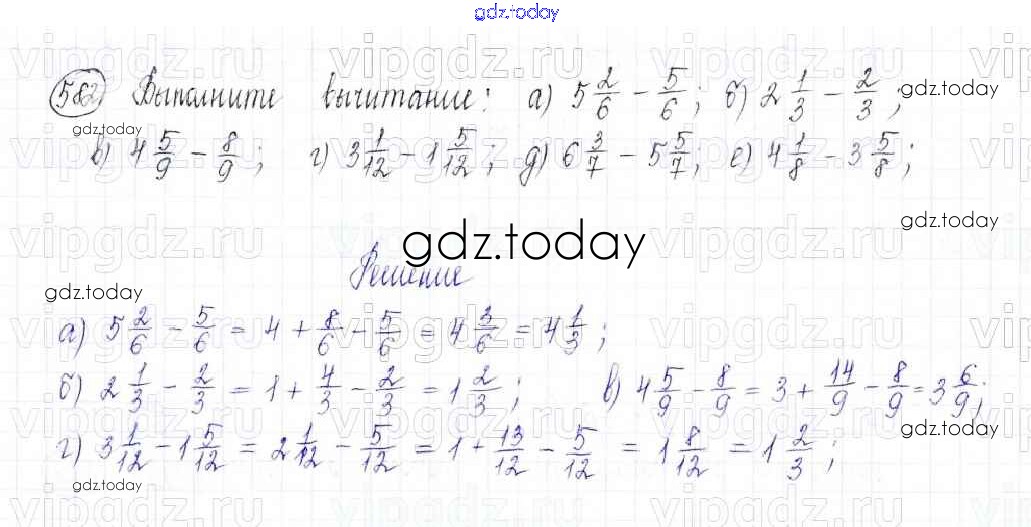 gdz.today
582 Выполните вычитание: а) 5 2/6 − 5/6; б) 2 1/3 − 2/3;
gdz.today
gdz.today
в) 4 5/9 − 8/9; г) 3 1/12 − 1 5/12; д) 6 3/7 − 5 5/7; е) 4 1/8 − 3 5/8;
gdz.today
gdz.today
Решение
gdz.today
а) 5 2/6 − 5/6 = 4 + 8/6 − 5/6 = 4 3/6 = 4 1/3;
б) 2 1/3 − 2/3 = 1 + 4/3 − 2/3 = 1 2/3; в) 4 5/9 − 8/9 = 3 + 14/9 − 8/9 = 3 6/9;
gdz.today
г) 3 1/12 − 1 5/12 = 2 1/12 − 5/12 = 1 + 13/12 − 5/12 = 1 8/12 = 1 2/3;
gdz.today
vipgdz.ru vipgdz.ru vipgdz.ru